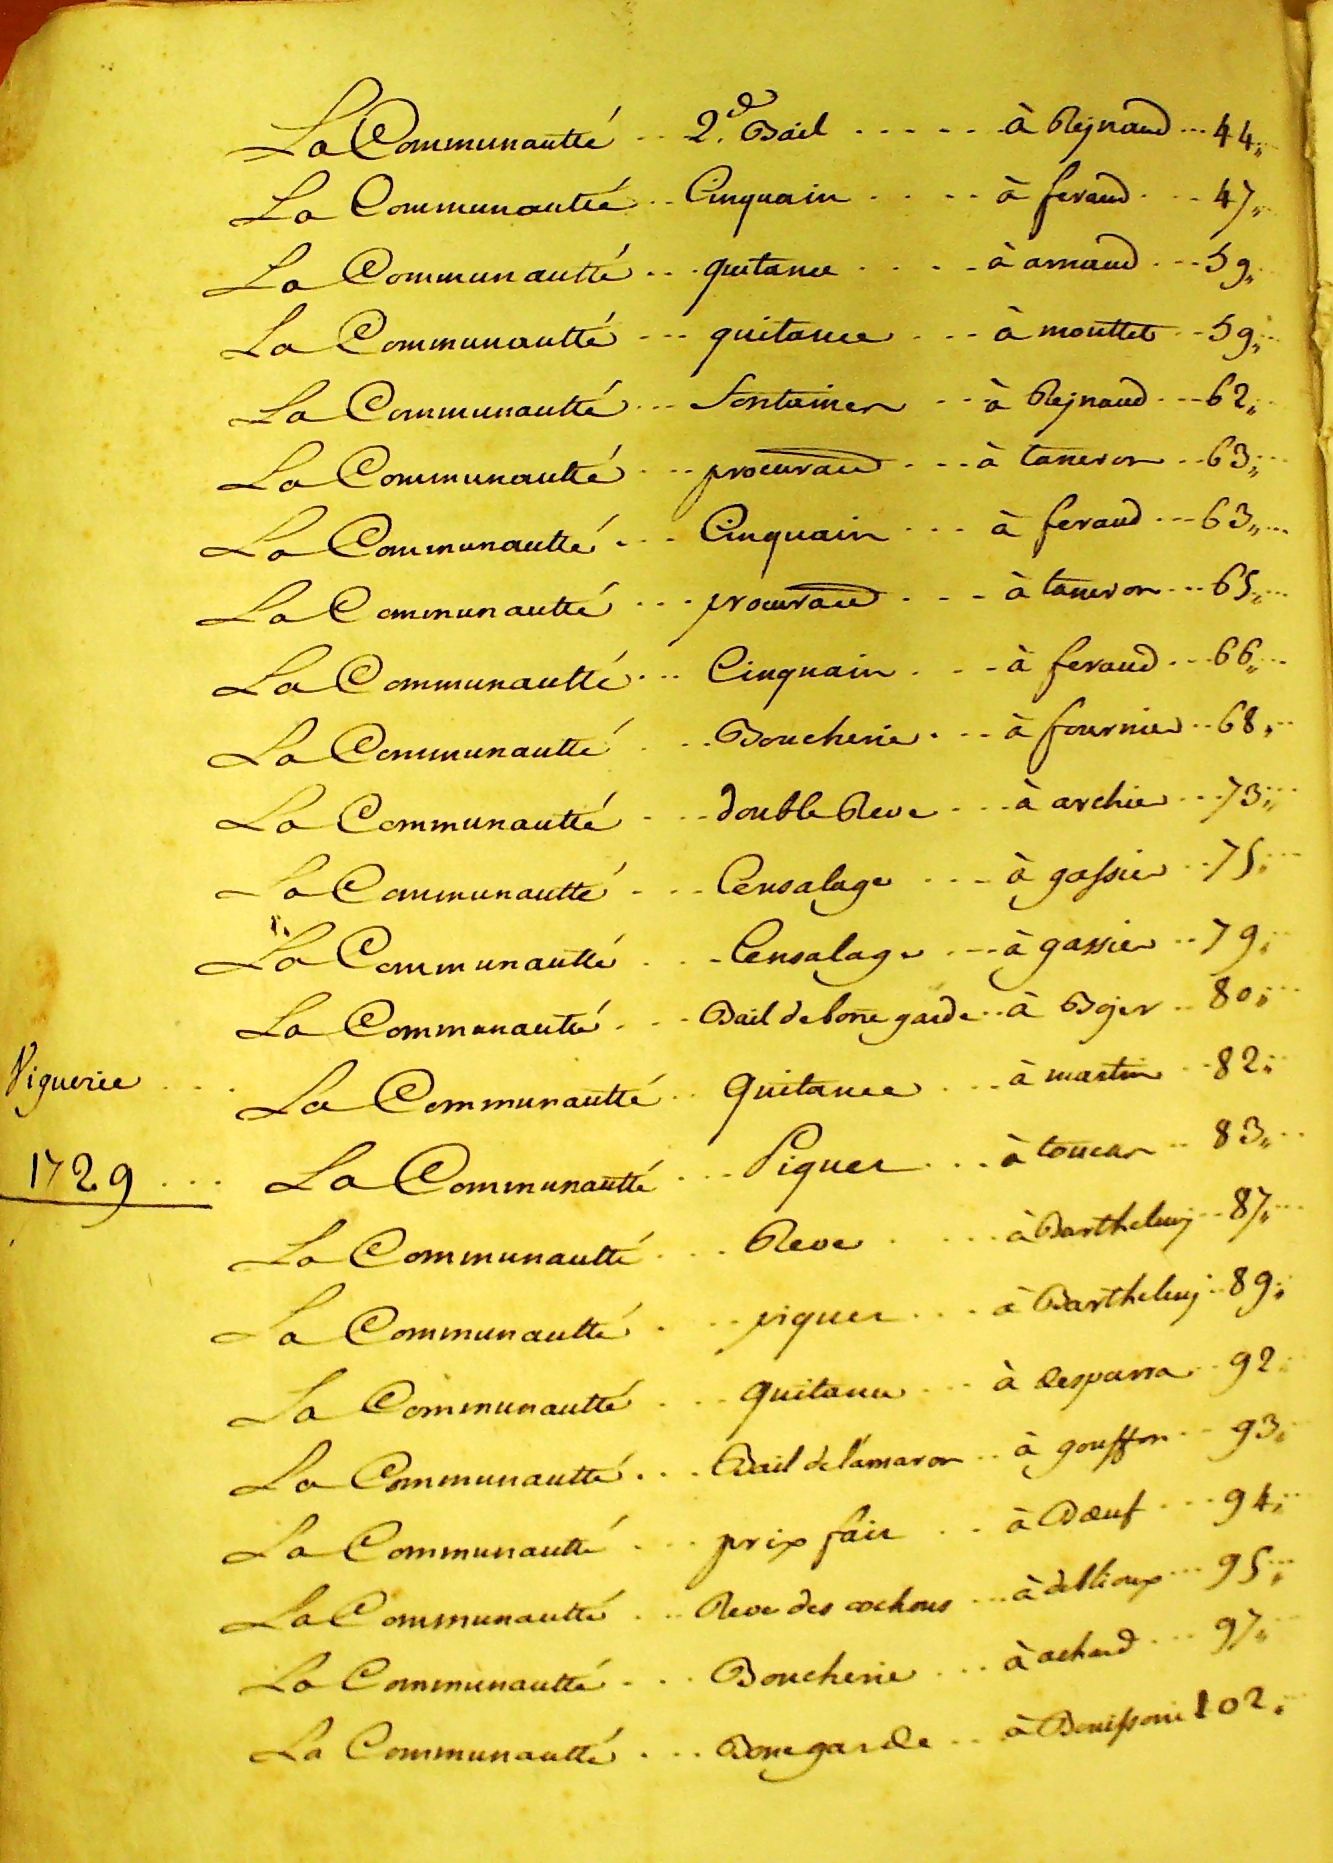 La Communautté .. 2.d Bail ..... à Rejnaud ... 44,,
La Communautté .. Cinquain .... à feraud ... 47,,
La Communautté ... quitance .... à arnaud ... 59,,
La Communautté ... quitance ... à mouttet .. 59,,
La Communautté ... fontainier ... à Rejnaud ... 62,,
La Communautté ... procuraon ... à taneron .. 63,,
La Communautté ... Cinquain ... à feraud ... 63,,
La Communautté ... procuraon ... à taneron ... 65,,
La Communautté ... Cinquain ... à feraud ... 66,,
La Communautté ... Boucherie ... à fournier .. 68,,
La Communautté ... double Reve ... à archier ... 73,,
La Communautté ... Censalage ... à gassier .. 75,,
La Communautté ... Censalage ... à gassier .. 79,,
La Communautté ... Bail de bone garde .. à Bojer .. 80,,
Viguerie ... La Communautté .. Quitance ... à martin .. 82,,
1729 ... La Communautté ... Piquet ... à .. 83,,
La Communautté ... Reve ... à Barthelemj .. 87,,
La Communautté ... piquet ... à Barthelemj .. 89,,
La Communautté ... quitance ... à desparra .. 92
La Communautté ... Bail de l'amaron .. à gouffon .. 93,,
La Communautté ... prix fait .. à Bœuf ... 94,,
La Communautté ... Reve des cochons ... à deblioux ... 95,,
La Communautté ... Boucherie ... à achard ... 97,,
La Communautté ... Bonegarde .. à 102,,